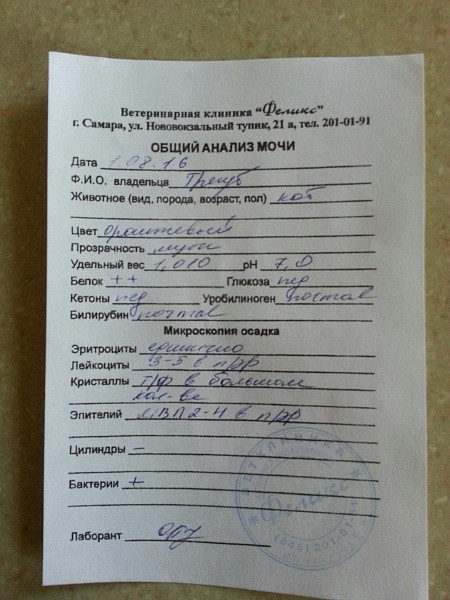 Ветеринарная клиника "Феликс"
г. Самара, ул. Нововокзальный тупик, 21 а, тел. 201-01-91
ОБЩИЙ АНАЛИЗ МОЧИ
Дата 1.08.16
Ф.И.О. владельца
Животное (вид, порода, возраст, пол) кот
Цвет оранжевый
Прозрачность мутн
Удельный вес 1,010 pH 7,0
Белок ++ Глюкоза
Кетоны Уробилиноген
Билирубин
Микроскопия осадка
Эритроциты единично
Лейкоциты 3-5 в п/зр
Кристаллы т/ф в большом
кол-ве
Эпителий МВП 2-4 в п/зр
Цилиндры –
Бактерии +
Лаборант
ВЕТКЛИНИКА
Феликс
(846) 201-01-91